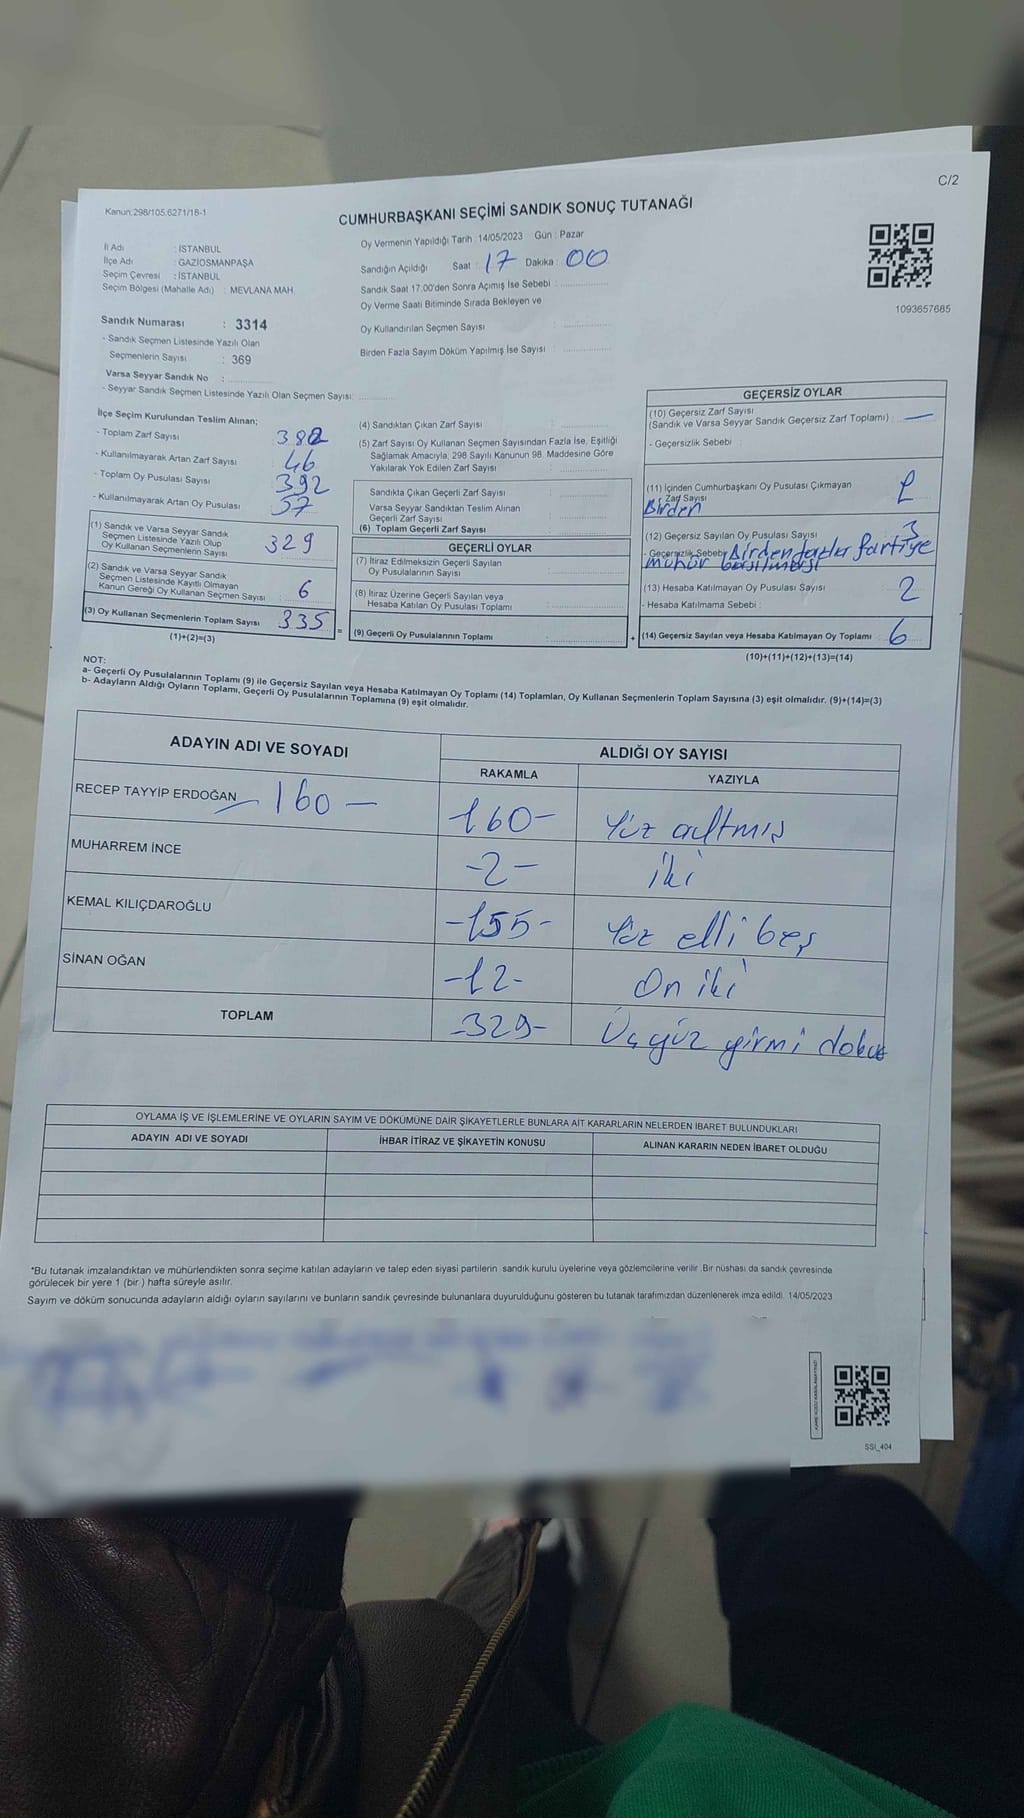 C/2
Kanun:298/105.6271/18-1
CUMHURBAŞKANI SEÇİMİ SANDIK SONUÇ TUTANAĞI
İl Adı : İSTANBUL
İlçe Adı : GAZİOSMANPAŞA
Seçim Çevresi : İSTANBUL
Seçim Bölgesi (Mahalle Adı) : MEVLANA MAH.
Sandık Numarası : 3314
- Sandık Seçmen Listesinde Yazılı Olan
Seçmenlerin Sayısı : 369
Varsa Seyyar Sandık No :
- Seyyar Sandık Seçmen Listesinde Yazılı Olan Seçmen Sayısı:
Oy Vermenin Yapıldığı Tarih : 14/05/2023 Gün : Pazar
Sandığın Açıldığı Saat : 17 Dakika : 00
Sandık Saat 17:00'den Sonra Açımış İse Sebebi :
Oy Verme Saati Bitiminde Sırada Bekleyen ve
Oy Kullandırılan Seçmen Sayısı :
Birden Fazla Sayım Döküm Yapılmış İse Sayısı :
1093657685
İlçe Seçim Kurulundan Teslim Alınan;
- Toplam Zarf Sayısı 382
- Kullanılmayarak Artan Zarf Sayısı 46
- Toplam Oy Pusulası Sayısı 392
- Kullanılmayarak Artan Oy Pusulası 57
(1) Sandık ve Varsa Seyyar Sandık
Seçmen Listesinde Yazılı Olup
Oy Kullanan Seçmenlerin Sayısı 329
(2) Sandık ve Varsa Seyyar Sandık
Seçmen Listesinde Kayıtlı Olmayan
Kanun Gereği Oy Kullanan Seçmen Sayısı : 6
(3) Oy Kullanan Seçmenlerin Toplam Sayısı 335
(1)+(2)=(3)
=
(4) Sandıktan Çıkan Zarf Sayısı :
(5) Zarf Sayısı Oy Kullanan Seçmen Sayısından Fazla İse, Eşitliği
Sağlamak Amacıyla; 298 Sayılı Kanunun 98. Maddesine Göre
Yakılarak Yok Edilen Zarf Sayısı :
Sandıkta Çıkan Geçerli Zarf Sayısı :
Varsa Seyyar Sandıktan Teslim Alınan
Geçerli Zarf Sayısı :
(6) Toplam Geçerli Zarf Sayısı :
GEÇERLİ OYLAR
(7) İtiraz Edilmeksizin Geçerli Sayılan
Oy Pusulalarının Sayısı :
(8) İtiraz Üzerine Geçerli Sayılan veya
Hesaba Katılan Oy Pusulası Toplamı :
(9) Geçerli Oy Pusulalarının Toplamı :
+
GEÇERSİZ OYLAR
(10) Geçersiz Zarf Sayısı
(Sandık ve Varsa Seyyar Sandık Geçersiz Zarf Toplamı) : —
- Geçersizlik Sebebi :
(11) İçinden Cumhurbaşkanı Oy Pusulası Çıkmayan
Zarf Sayısı 1
Birden
(12) Geçersiz Sayılan Oy Pusulası Sayısı 3
- Geçersizlik Sebebi Birden fazla Partiye
mühür basılması
(13) Hesaba Katılmayan Oy Pusulası Sayısı : 2
- Hesaba Katılmama Sebebi :
(14) Geçersiz Sayılan veya Hesaba Katılmayan Oy Toplamı : 6
(10)+(11)+(12)+(13)=(14)
NOT:
a- Geçerli Oy Pusulalarının Toplamı (9) ile Geçersiz Sayılan veya Hesaba Katılmayan Oy Toplamı (14) Toplamları, Oy Kullanan Seçmenlerin Toplam Sayısına (3) eşit olmalıdır. (9)+(14)=(3)
b- Adayların Aldığı Oyların Toplamı, Geçerli Oy Pusulalarının Toplamına (9) eşit olmalıdır.
ADAYIN ADI VE SOYADI ALDIĞI OY SAYISI
RAKAMLA YAZIYLA
RECEP TAYYİP ERDOĞAN — 160 — 160- Yüz altmış
MUHARREM İNCE -2- iki
KEMAL KILIÇDAROĞLU -155- Yüz elli beş
SİNAN OĞAN -12- On iki
TOPLAM -329- Üçyüz yirmi dokuz
OYLAMA İŞ VE İŞLEMLERİNE VE OYLARIN SAYIM VE DÖKÜMÜNE DAİR ŞİKAYETLERLE BUNLARA AİT KARARLARIN NELERDEN İBARET BULUNDUKLARI
ADAYIN ADI VE SOYADI İHBAR İTİRAZ VE ŞİKAYETİN KONUSU ALINAN KARARIN NEDEN İBARET OLDUĞU
*Bu tutanak imzalandıktan ve mühürlendikten sonra seçime katılan adayların ve talep eden siyasi partilerin sandık kurulu üyelerine veya gözlemcilerine verilir. Bir nüshası da sandık çevresinde
görülecek bir yere 1 (bir ) hafta süreyle asılır.
Sayım ve döküm sonucunda adayların aldığı oyların sayılarını ve bunların sandık çevresinde bulunanlara duyurulduğunu gösteren bu tutanak tarafımızdan düzenlenerek imza edildi. 14/05/2023
SSI_404